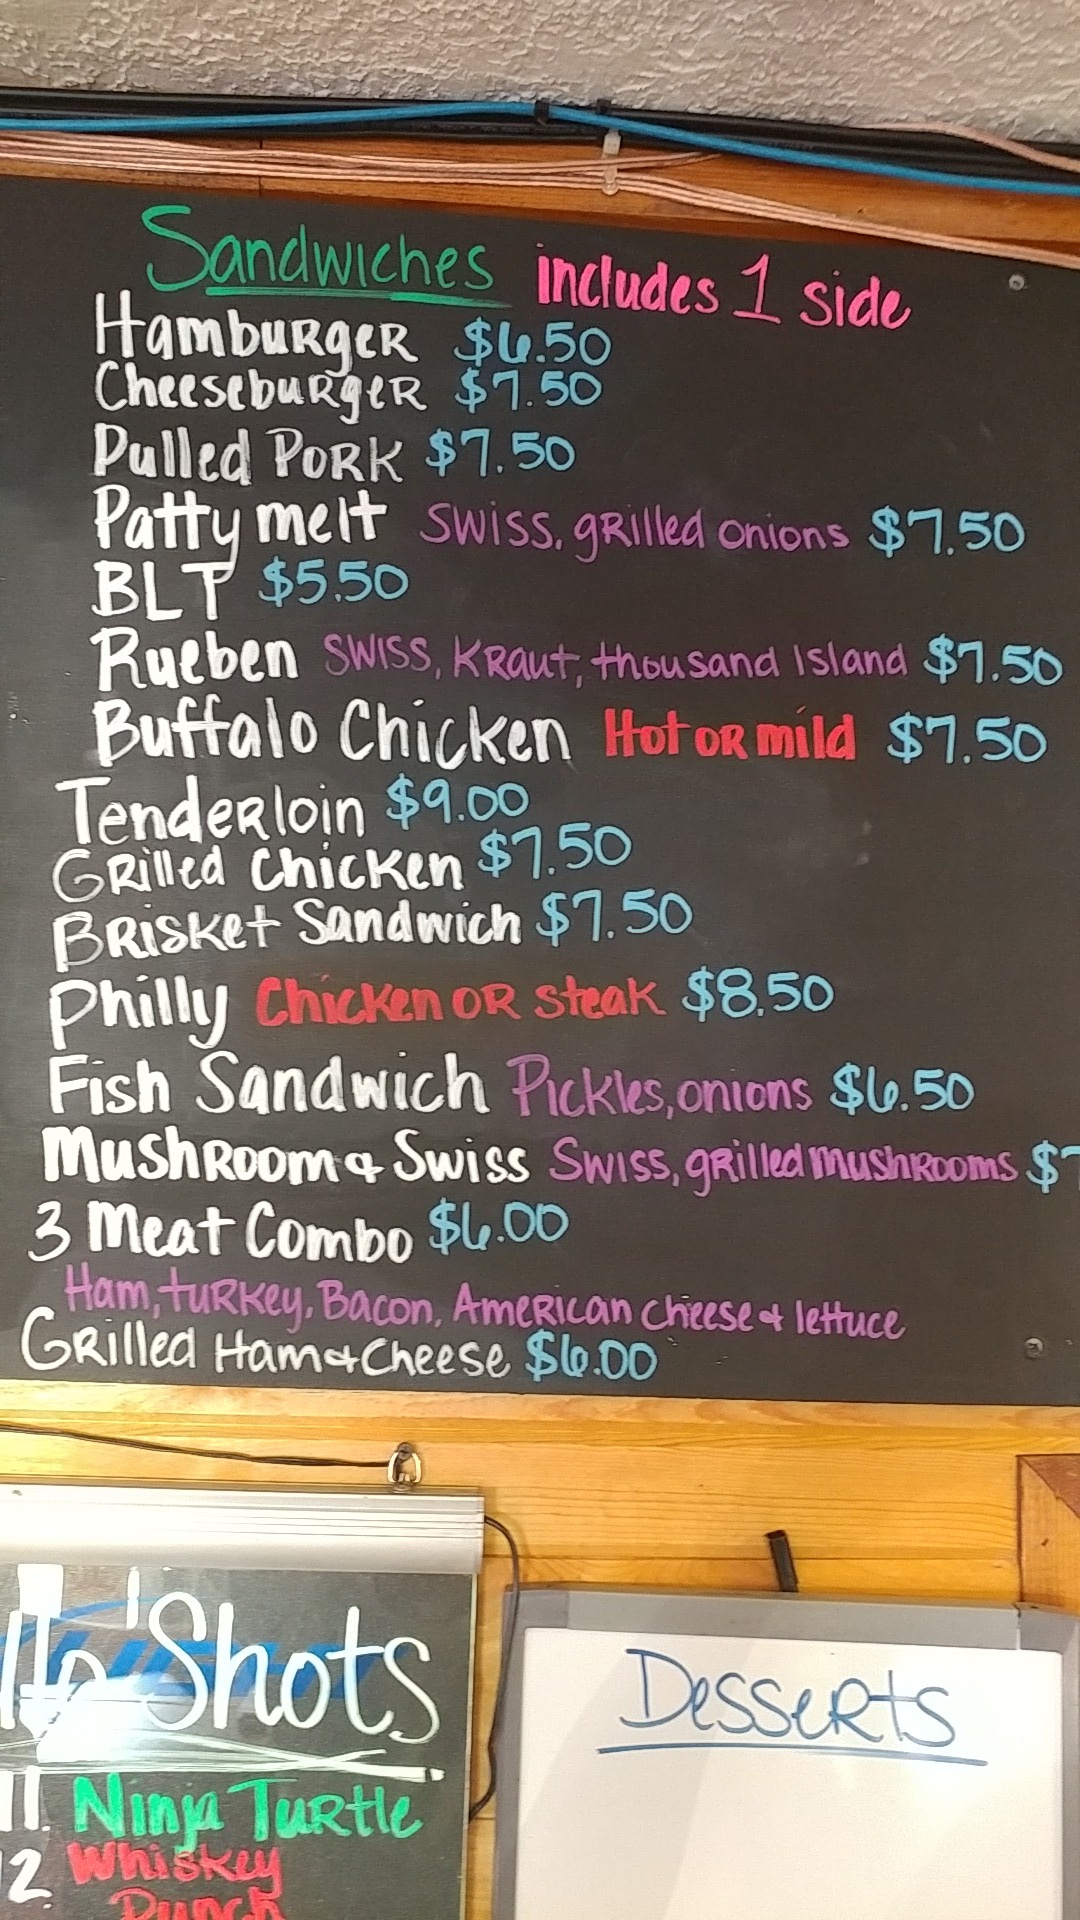 Sandwiches includes 1 side
Hamburger $6.50
Cheeseburger $7.50
Pulled Pork $7.50
Patty melt Swiss, grilled onions $7.50
BLT $5.50
Rueben Swiss, Kraut, thousand Island $7.50
Buffalo Chicken Hot or mild $7.50
Tenderloin $9.00
Grilled Chicken $7.50
Brisket Sandwich $7.50
Philly Chicken or steak $8.50
Fish Sandwich Pickles, onions $6.50
Mushroom & Swiss Swiss, grilled mushrooms $7
3 Meat Combo $6.00
Ham, turkey, Bacon, American cheese & lettuce
Grilled Ham & Cheese $6.00
Shots
11. Ninja Turtle
12. Whiskey
Punch
Desserts